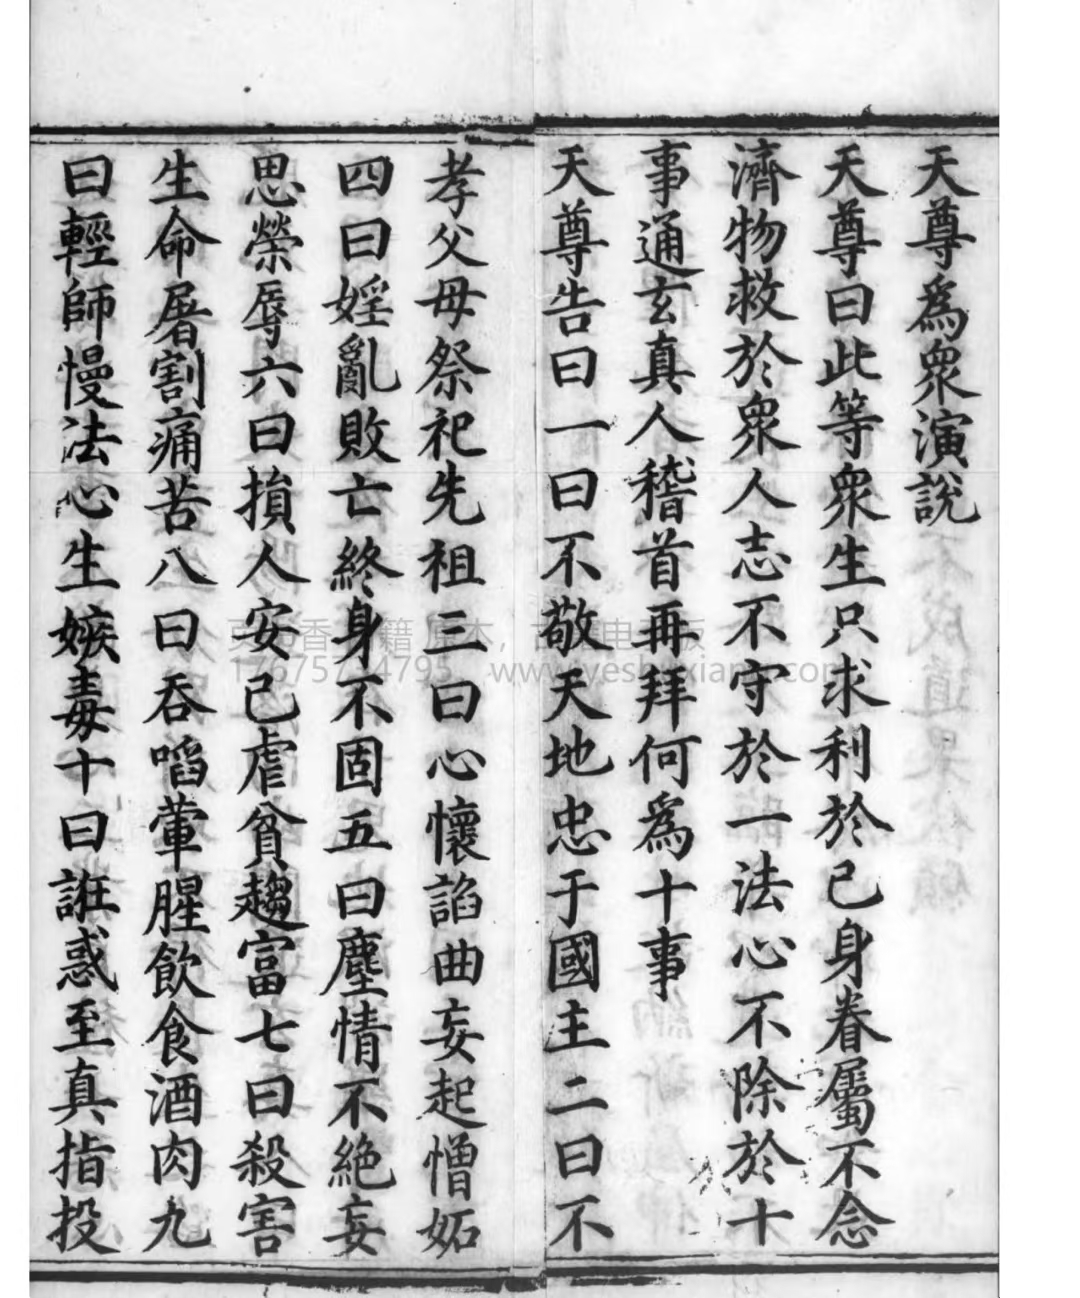 天尊爲衆演說
天尊曰此等衆生只求利於已身眷屬不念
濟物救於衆人志不守於一法心不除於十
事通玄真人稽首再拜何爲十事
天尊告曰一曰不敬天地忠于國主二曰不
孝父母祭祀先祖三曰心懷諂曲妄起憎妬
四曰婬亂敗亡終身不固五曰塵情不絕妄
思榮辱六曰損人安己虐貧趨富七曰殺害
生命屠割痛苦八曰吞啗葷腥飲食酒肉九
曰輕師慢法心生嫉毒十曰誑惑至真指投